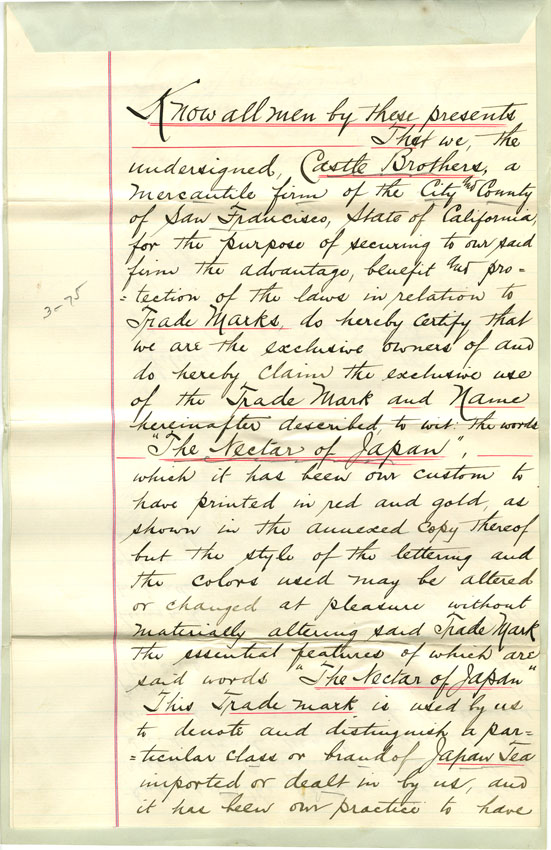 Know all men by these presents
That we, the
undersigned, Castle Brothers, a
Mercantile firm of the City and County
of San Francisco, State of California,
for the purpose of securing to our said
firm the advantage, benefit and pro=
=tection of the laws in relation to
Trade Marks, do hereby certify that
we are the exclusive owners of and
do hereby claim the exclusive use
of the Trade Mark and Name
hereinafter described, to wit: the words
"The Nectar of Japan",
which it has been our custom to
have printed in red and gold, as
shown in the annexed copy thereof
but the style of the lettering and
the colors used may be altered
or changed at pleasure without
materially altering said Trade Mark
the essential features of which are
said words "The Nectar of Japan"
This Trade mark is used by us
to denote and distinguish a par=
=ticular class or brand of Japan Tea
imported or dealt in by us, and
it has been our practice to have
3-75